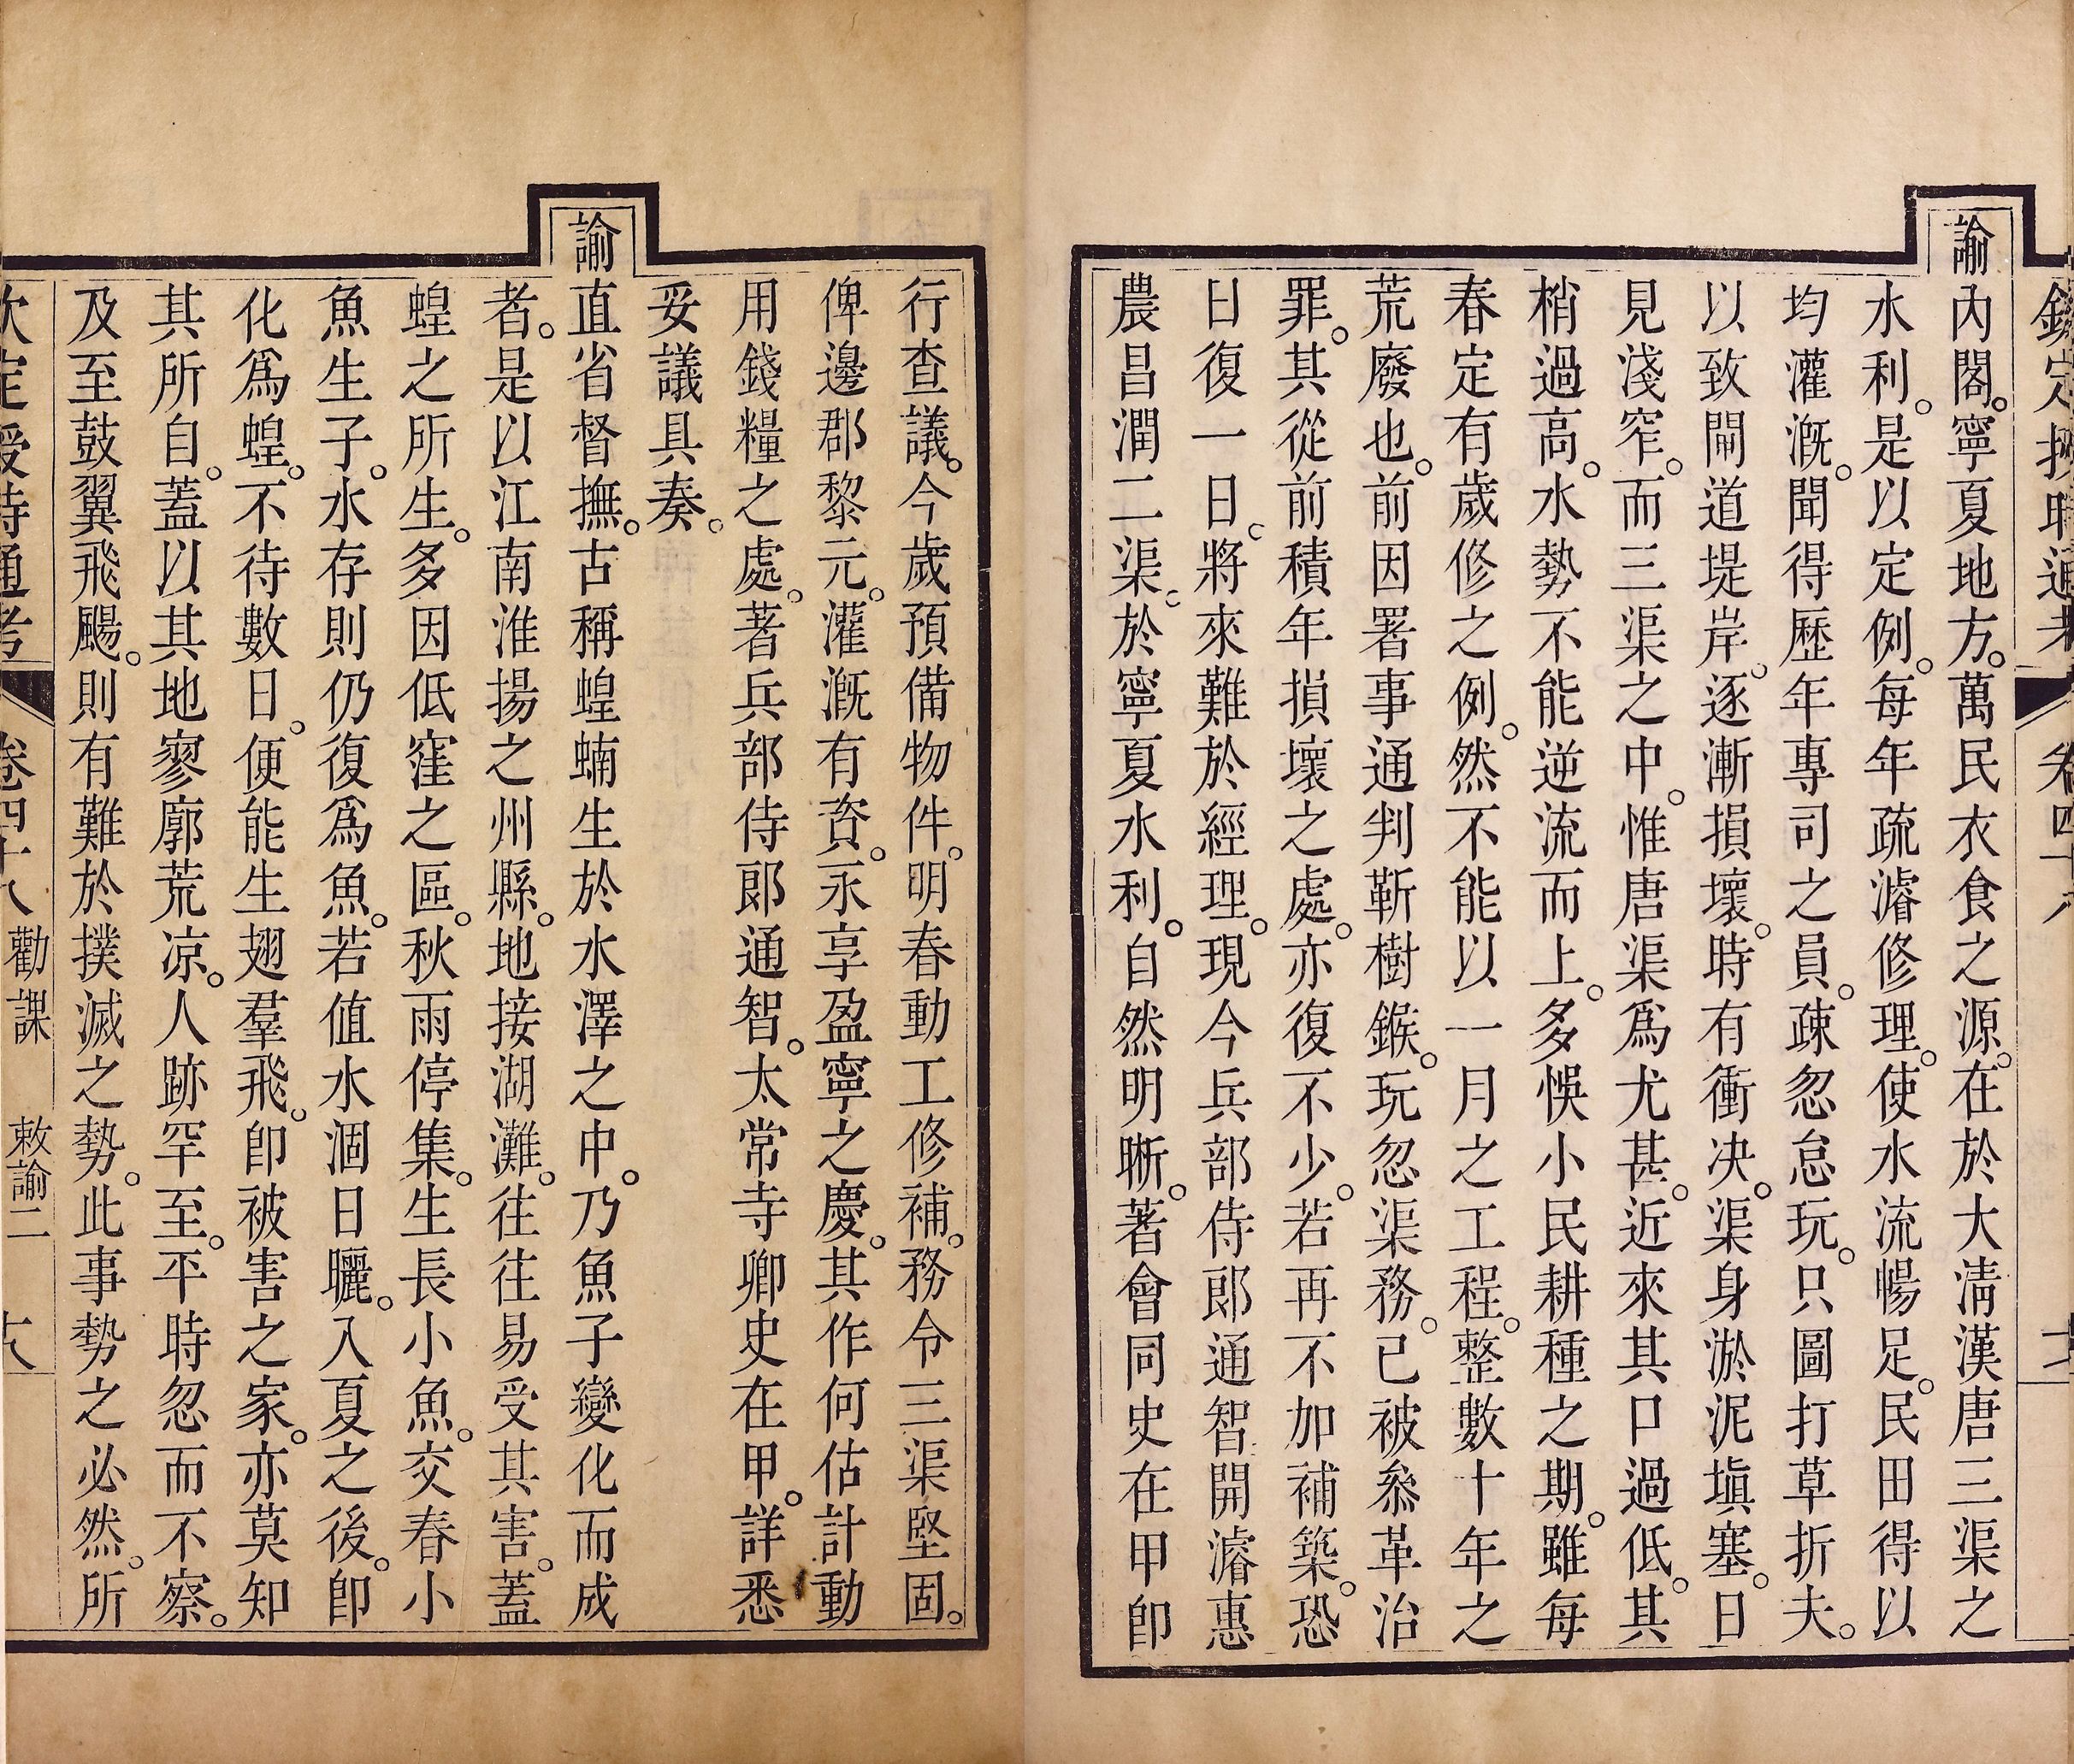 欽定授時通考 卷四十八
諭內閣。寧夏地方。萬民衣食之源。在於大清漢唐三渠之
水利。是以定例。每年疏濬修理。使水流暢足。民田得以
均灌漑。聞得歷年專司之員。疎忽怠玩。只圖打草折夫。
以致閘道堤岸。逐漸損壞。時有衝决。渠身淤泥塡塞。日
見淺窄。而三渠之中。惟唐渠爲尤甚。近來其口過低。其
梢過高。水勢不能逆流而上。多悞小民耕種之期。雖每
春定有歲修之例。然不能以一月之工程。整數十年之
荒廢也。前因署事通判靳樹鍭。玩忽渠務。已被叅革治
罪。其從前積年損壞之處。亦復不少。若再不加補築。恐
日復一日。將來難於經理。現今兵部侍郞通智開濬惠
農昌潤二渠。於寧夏水利。自然明晣。著會同史在甲卽
行查議。今歲預備物件。明春動工修補。務令三渠堅固。
俾邊郡黎元。灌漑有資。永享盈寧之慶。其作何估計動
用錢糧之處。著兵部侍郞通智。太常寺卿史在甲。詳悉
妥議具奏。
諭直省督撫。古稱蝗蝻生於水澤之中。乃魚子變化而成
者。是以江南淮揚之州縣。地接湖灘。往往易受其害。蓋
蝗之所生。多因低窪之區。秋雨停集。生長小魚。交春小
魚生子。水存則仍復爲魚。若值水涸日曬。入夏之後。卽
化爲蝗。不待數日。便能生翅羣飛。卽被害之家。亦莫知
其所自。蓋以其地寥廓荒凉。人跡罕至。平時忽而不察。
及至鼓翼飛颺。則有難於撲滅之勢。此事勢之必然。所
欽定授時通考 卷四十八 勸課 敕諭二 十八